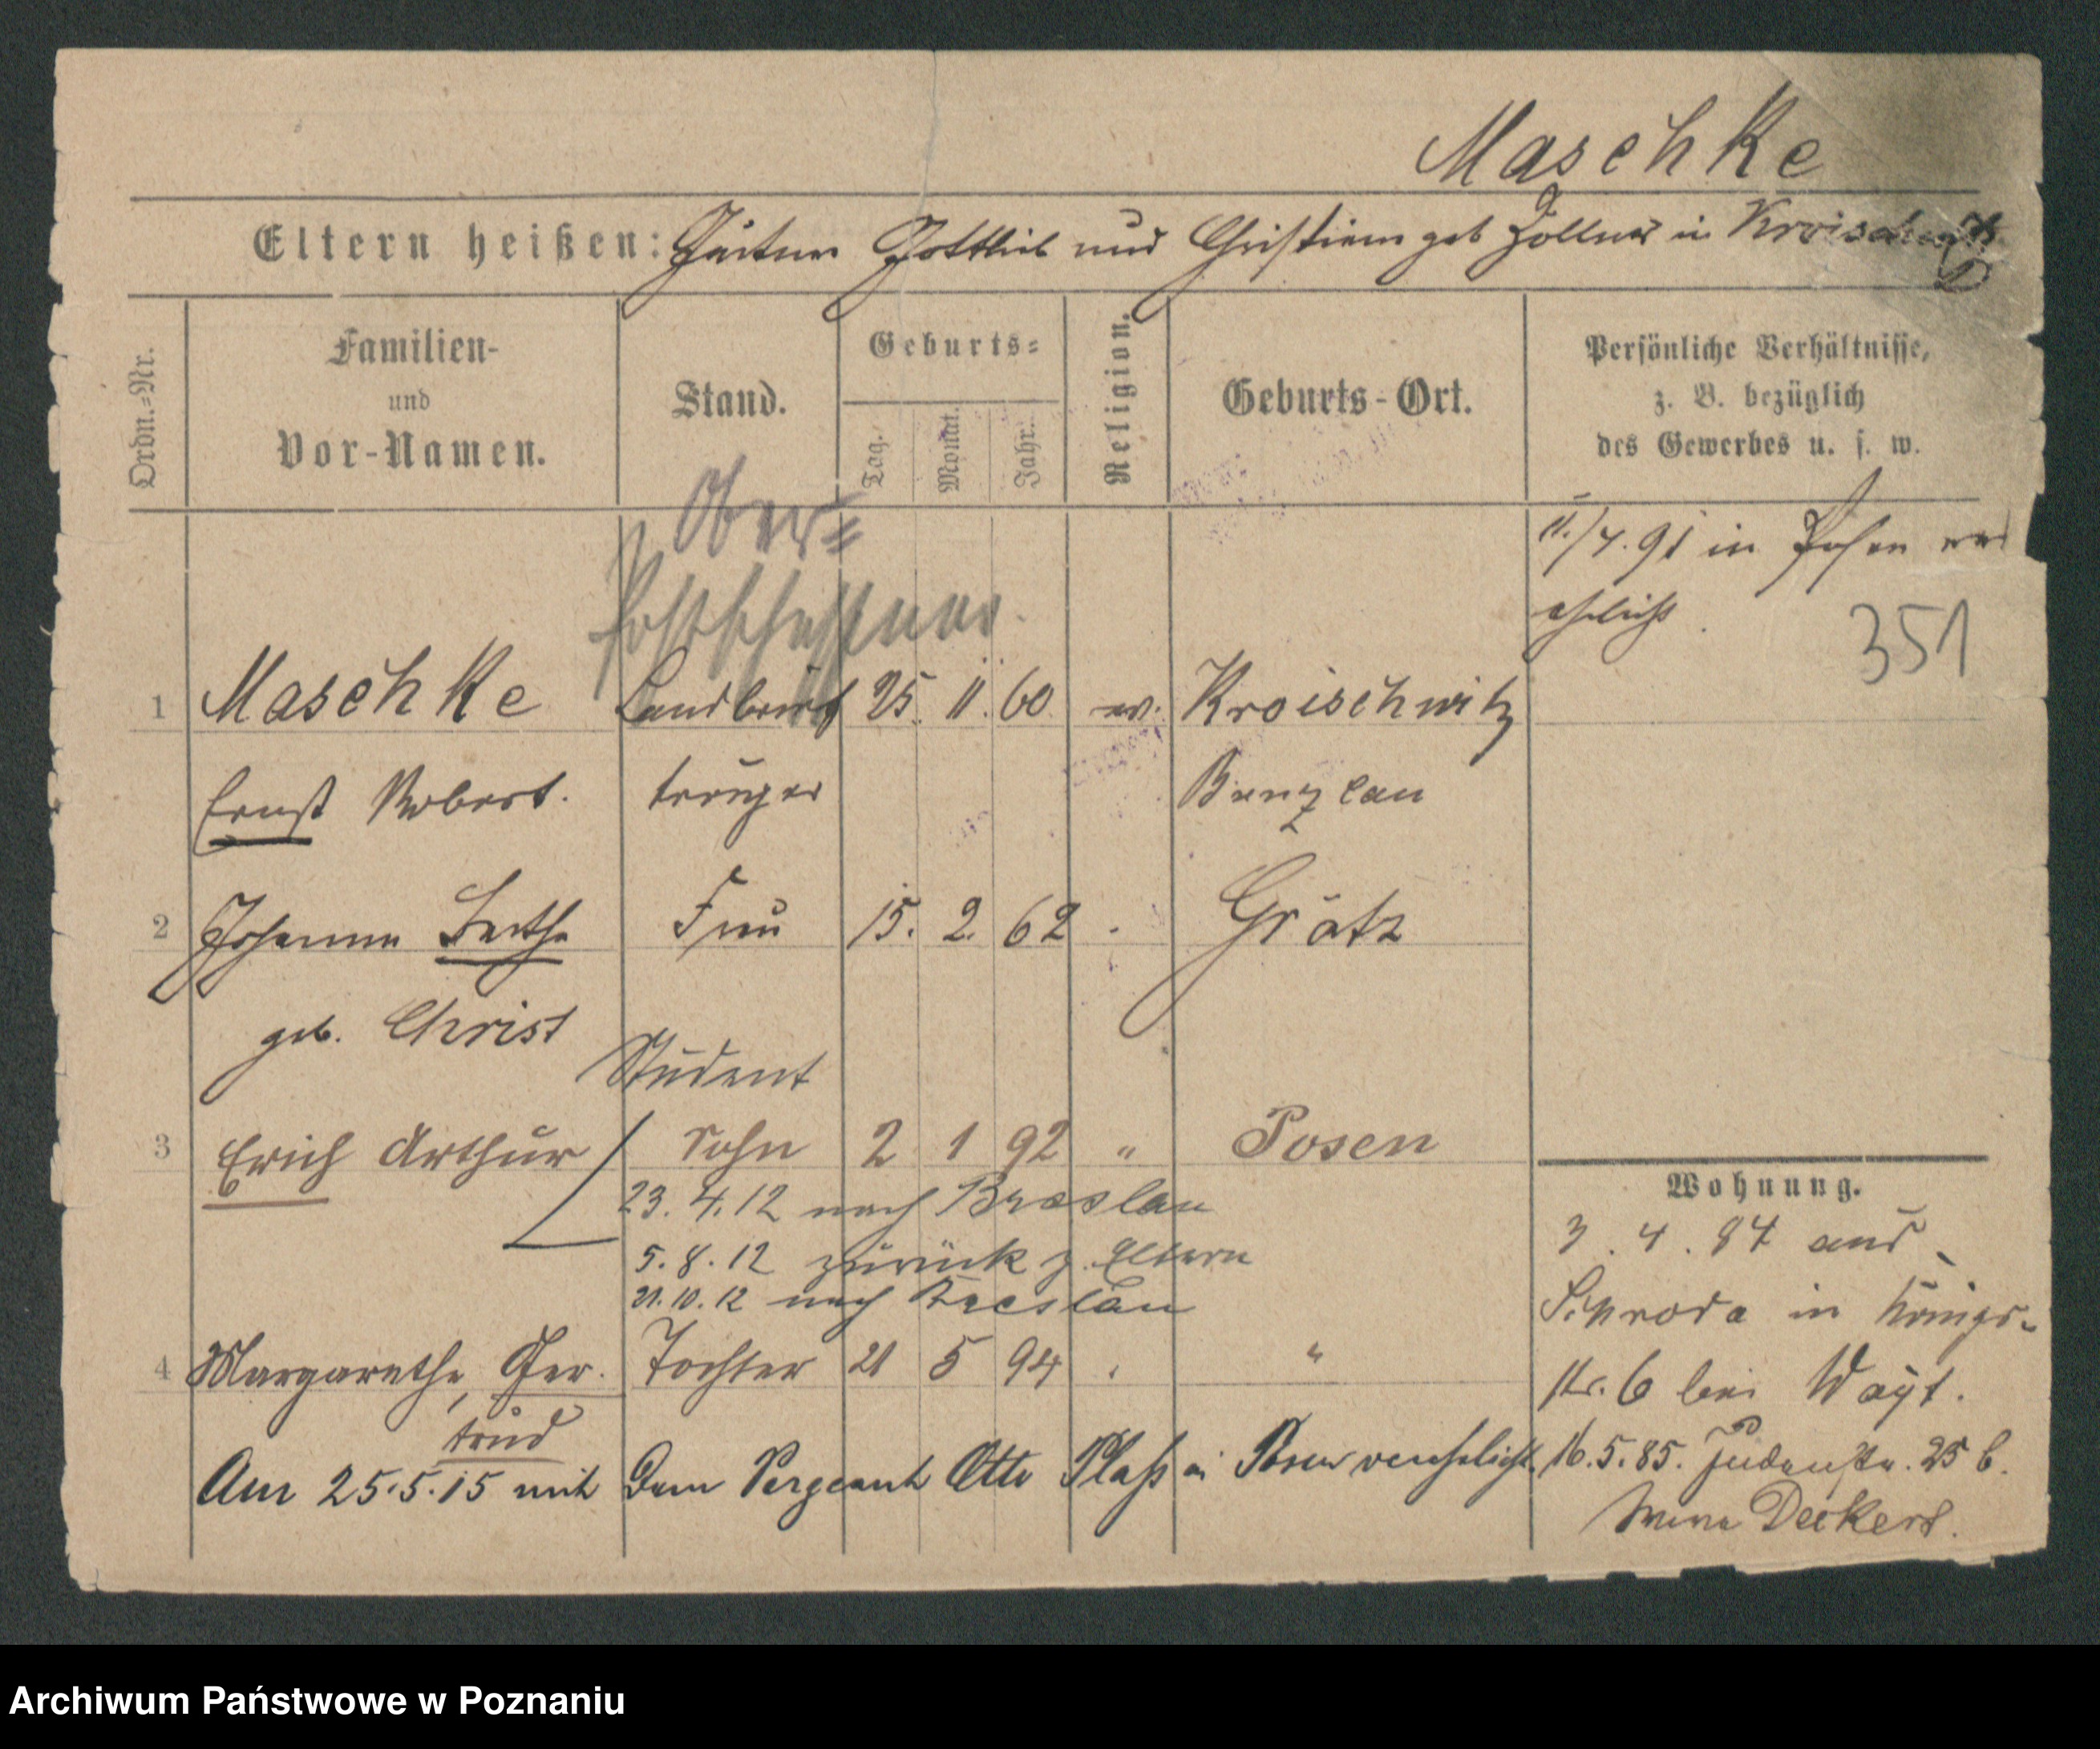 Maschke
Eltern heißen: Gärtner Gottlieb und Christiane geb Zollner in Kroischwitz
Ordn.-Nr.
Familien-
und
Vor-Namen.
Stand.
Geburts-
Tag.
Monat.
Jahr.
Religion.
Geburts-Ort.
Persönliche Verhältnisse,
z. B. bezüglich
des Gewerbes u. s. w.
Ober-
Postschaffner.
11./4.91 in Posen ver
ehelicht.
351
1 Maschke Landbrief 25. 11. 60 ev. Kroischwitz
Ernst Robert. träger Bunzlau
2 Johanna Bertha Frau 15. 2. 62 Grätz
geb. Christ
Student
3 Erich Arthur Sohn 2 1 92 " Posen
23. 4. 12 nach Breslau
5. 8. 12 zurück z. Eltern
21. 10. 12 nach Breslau
4 Margarethe, Ger- Tochter 21 5 94 "
trud
Am 25.5.15 mit dem Sergeant Otto Plaß in Posen verehelicht.
Wohnung.
3. 4. 84 aus
Schroda in Königs-
str. 6 bei Wayt.
16. 5. 85. Judenstr. 25 b.
Deckert.